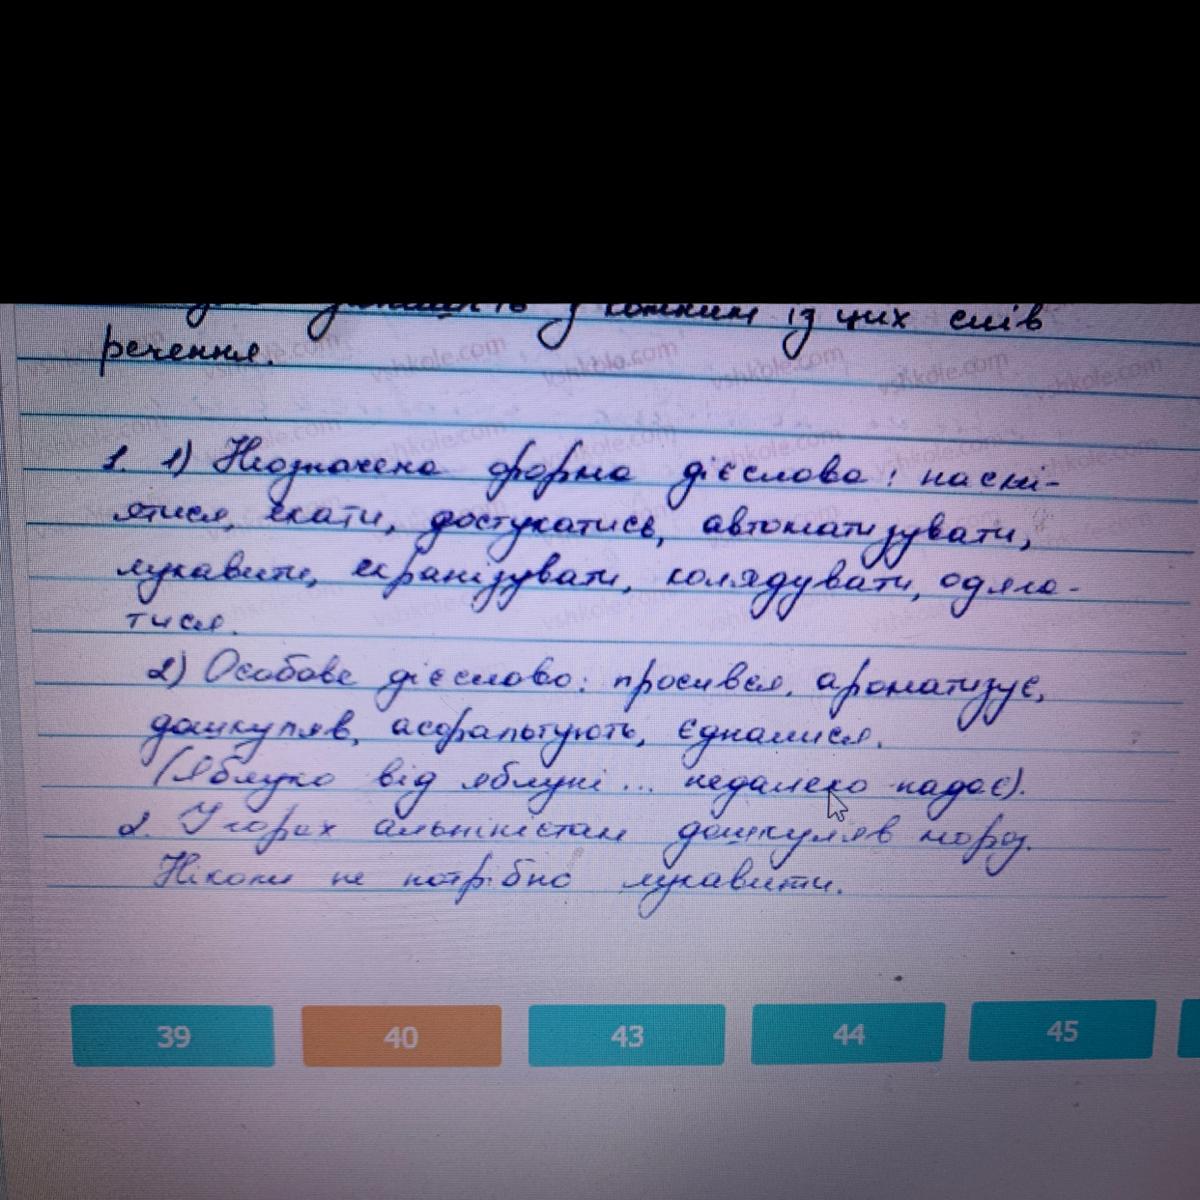 у кожним із цих слів
речення.
1. 1) Неозначена форма дієслова: насмі-
ятися, екати, достукатись, автоматизувати,
лукавити, екранізувати, колядувати, одяга-
тися.
2) Особове дієслово: просився, ароматизує,
дошкуляв, асфальтують, єдналися.
(Яблуко від яблуні ... недалеко падає).
2. У горах альпіністам дошкуляв мороз.
Ніколи не потрібно лукавити.
39 40 43 44 45